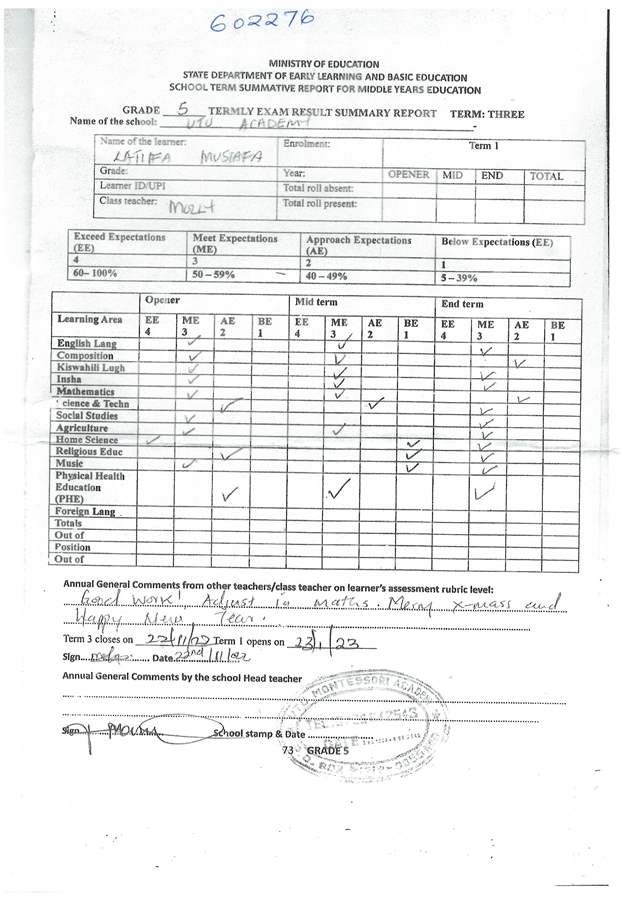 602276
MINISTRY OF EDUCATION
STATE DEPARTMENT OF EARLY LEARNING AND BASIC EDUCATION
SCHOOL TERM SUMMATIVE REPORT FOR MIDDLE YEARS EDUCATION
GRADE 5 TERMLY EXAM RESULT SUMMARY REPORT TERM: THREE
Name of the school: UTU ACADEMY
Name of the learner: Enrolment: Term 1
LATIFA MUSTAFA
Grade: Year: OPENER MID END TOTAL
Learner ID/UPI Total roll absent:
Class teacher: MOLLY Total roll present:
Exceed Expectations (EE) Meet Expectations (ME) Approach Expectations (AE) Below Expectations (EE)
4 3 2 1
60– 100% 50 – 59% 40 – 49% 5 – 39%
Opener Mid term End term
Learning Area EE 4 ME 3 AE 2 BE 1 EE 4 ME 3 AE 2 BE 1 EE 4 ME 3 AE 2 BE 1
English Lang ✓ ✓
Composition ✓ ✓ ✓
Kiswahili Lugh ✓ ✓ ✓
Insha ✓ ✓ ✓
Mathematics ✓ ✓ ✓
cience & Techn ✓ ✓ ✓
Social Studies ✓ ✓
Agriculture ✓ ✓ ✓
Home Science ✓ ✓ ✓
Religious Educ ✓ ✓ ✓
Music ✓ ✓ ✓
Physical Health
Education
(PHE) ✓ ✓ ✓
Foreign Lang
Totals
Out of
Position
Out of
Annual General Comments from other teachers/class teacher on learner's assessment rubric level:
Good work! Adjust in maths. Merry x-mass and
Happy New Year.
Term 3 closes on 22/11/22 Term 1 opens on 23/1/23
Sign. Date 22nd/11/22
Annual General Comments by the school Head teacher
Sign School stamp & Date
UTU MONTESSORI ACADEMY
DATE
73 GRADE 5